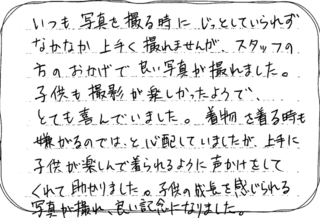 いつも写真を撮る時にじっとしていられず
なかなか上手く撮れませんが、スタッフの
方のおかげで良い写真が撮れました。
子供も撮影が楽しかったようで、
とても喜んでいました。着物を着る時も
嫌がるのでは、と心配していましたが、上手に
子供が楽しんで着られるように声かけをして
くれて助かりました。子供の成長を感じられる
写真が撮れ、良い記念になりました。